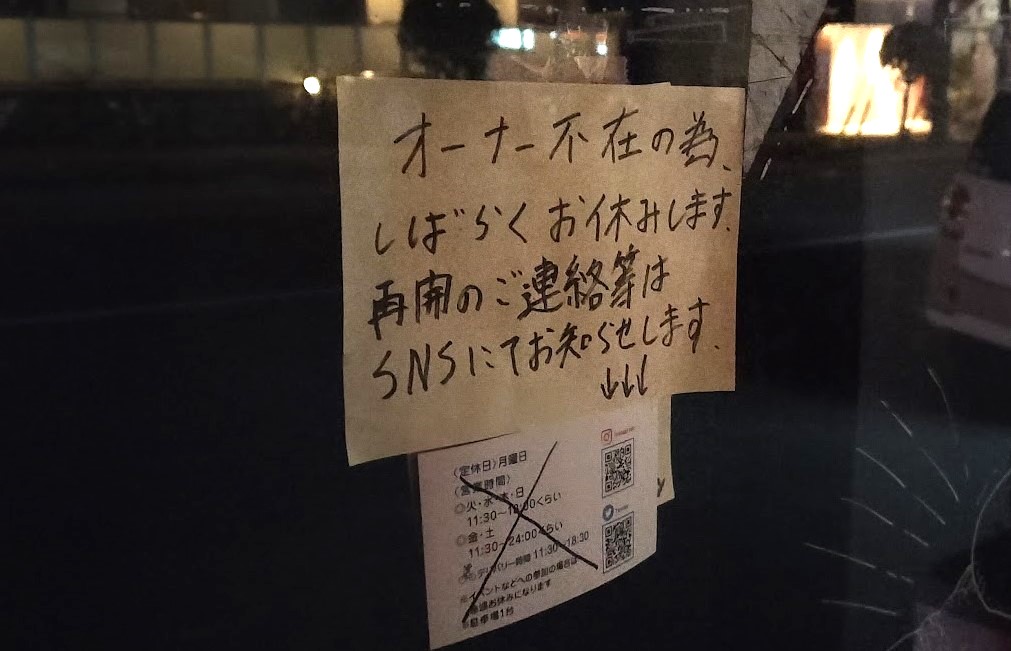 オーナー不在の為、
しばらくお休みします。
再開のご連絡等は
SNSにてお知らせします。
↓↓↓
〈定休日〉月曜日
〈営業時間〉
◎火・水・木・日
11:30〜18:00くらい
◎金・土
11:30〜24:00くらい
デリバリー時間 11:30〜18:30
※イベントなどへの参加の場合は
お休みになります
駐車場1台
Instagram
Twitter